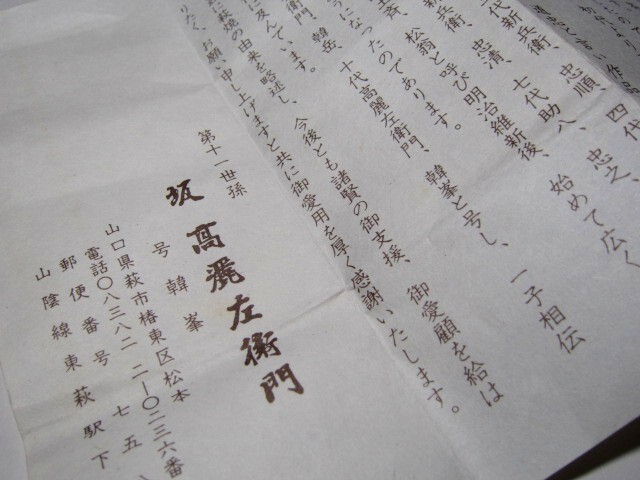 四代、忠之、始めて広く
代新兵衛、忠順、八、一子相伝
新兵衛、忠清、七代助
松翁と呼び明治維新後、韓峯と号し、
たのであります。
衛門、韓岳、十代高麗左衛門、
に及んでいます。
に萩焼の由来を略述し、今後とも諸賢の御支援、御愛顧を給は
りたく、お願い申し上げますと共に御愛用を厚く感謝いたします。
第十一世孫
坂高麗左衛門
号韓峯
山口県萩市椿東区松本
電話〇八三八二 二―〇二三六番
郵便番号 七五八
山陰線東萩駅下